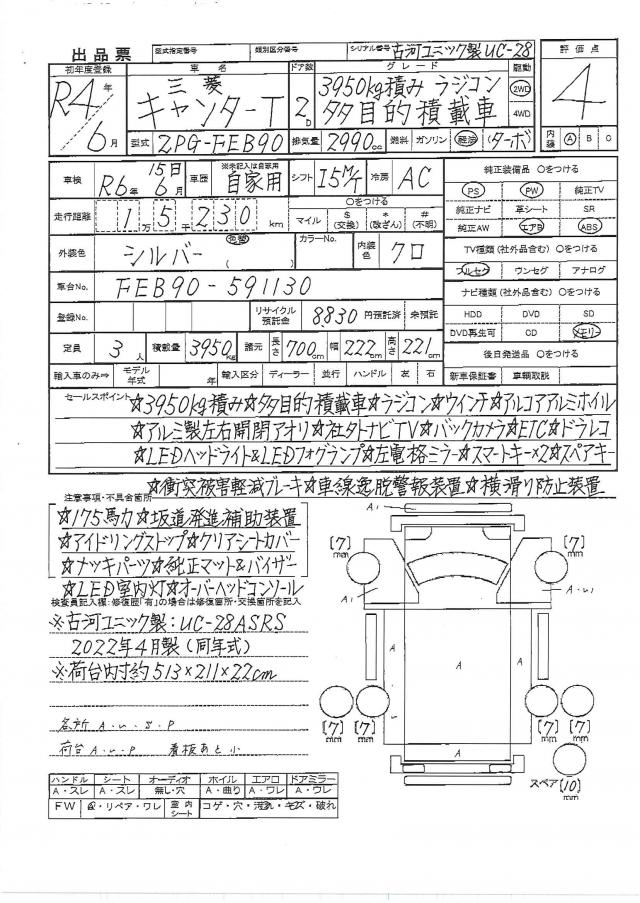 出品票 型式指定番号 類別区分番号 シリアル番号 古河ユニック製UC-28
初年度登録 車名 ドア数 グレード 駆動 評価点
R4年 三菱 3950kg積み ラジコン 2WD 4
6月 キャンターT 2D 多目的積載車 4WD
型式 2PG-FEB90 排気量 2990cc 燃料 ガソリン 軽油 (ターボ) 内装 A B C
車検 R6年 15日 6月 車歴 ※未記入は自家用 自家用 シフト I5M/T 冷房 AC 純正装備品 ○をつける
PS PW 純正TV
走行距離 1万5千230km ○をつける マイル $(交換) *(改ざん) #(不明) 純正ナビ 革シート SR
純正AW エアB ABS
外装色 シルバー 色替 ( ) カラーNo. 内装色 クロ TV種類(社外品含む) ○をつける
フルセグ ワンセグ アナログ
車台No. FEB90-591130 ナビ種類(社外品含む) ○をつける
登録No. リサイクル預託金 8830 円預託済 未預託 HDD DVD SD
DVD再生可 CD メモリー
定員 3人 積載量 3950kg 諸元 長さ 700cm 幅 222cm 高さ 221cm 後日発送品 ○をつける
輸入車のみ⇒ モデル年式 年 輸入区分 ディーラー 並行 ハンドル 左 右 新車保証書 車輌取説
セールスポイント ☆3950kg積み☆多目的積載車☆ラジコン☆ウインチ☆アルコアアルミホイル
☆アルミ製左右開閉アオリ☆社外ナビTV☆バックカメラ☆ETC☆ドラレコ
☆LEDヘッドライト&LEDフォグランプ☆左電格ミラー☆スマートキー×2☆スペアキー
☆衝突被害軽減ブレーキ☆車線逸脱警報装置☆横滑り防止装置
注意事項・不具合箇所
☆175馬力☆坂道発進補助装置
☆アイドリングストップ☆クリアシートカバー
☆ナッキパーツ☆純正マット&バイザー
☆LED室内灯☆オーバーヘッドコンソール
検査員記入欄:修復歴「有」の場合は修復箇所・交換箇所を記入
※古河ユニック製:UC-28ASRS
2022年4月製(同年式)
※荷台内寸約513×211×22cm
各所 A・U・S・P
荷台 A・U・P 看板あと小
A1
[7]mm [7]mm
A1 A・U1
A A A
[7]mm [7]mm [7]mm [7]mm
A
スペア [10]mm
ハンドル シート オーディオ ホイル エアロ ドアミラー
A・スレ A・スレ 無し・穴 A・曲り A・ワレ A・ワレ
FW ・リペア・ワレ 室内シート コゲ・穴・汚れ・キズ・破れ